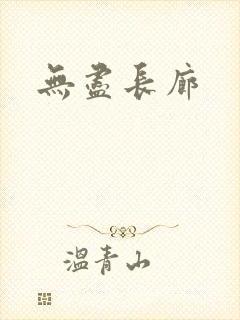 無盡長廊
溫青山